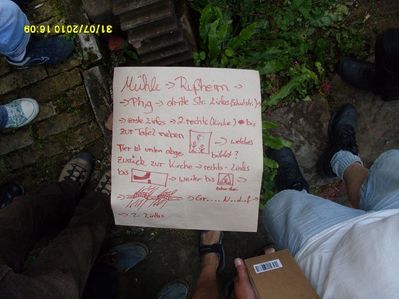 31/07/2010 16:09
Mühle → Rußheim →
→ Phig → dritte Str. Links (Schulstr.) →
→ erste Links → 2. rechts (Kirche) → bis
zur Tafel neben → welches
Tier ist unten abge. bildet?
Zurück zur Kirche → rechts - Links
bis → weiter bis
→ → Gr.... N..d..f →
→ 2. Links